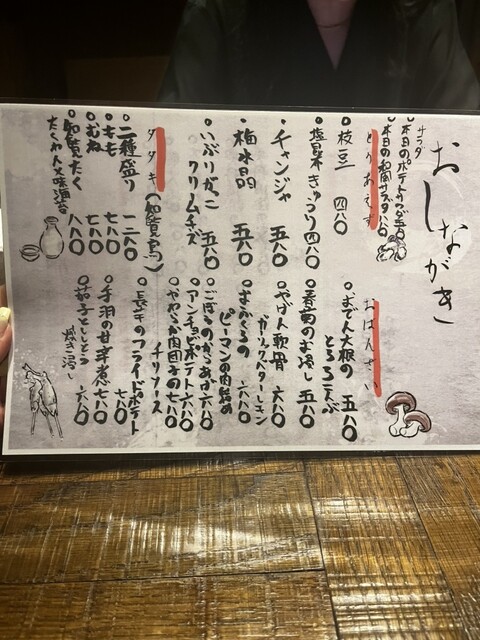 おしながき
サラダ
本日のポテトサラダ 五八〇
本日の和風サラダ 八八〇
とりあえず
枝豆 四八〇
塩昆布きゅうり 四八〇
チャンジャ 五八〇
梅水晶 五八〇
いぶりがっこ
クリームチーズ 五八〇
タタキ(知覧鶏)
二種盛り 一二八〇
もも 七八〇
むね 七八〇
知覧たたく
たくわん入味海苔 八八〇
おばんざい
おでん大根の
とろろこんぶ 五八〇
春菊のお浸し 五八〇
やげん軟骨
ガーリックバターレモン 六八〇
おふくろの
ピーマンの肉詰め 六八〇
ごぼうのからあげ 六八〇
アンチョビポテト 六八〇
やわらか肉団子の
チリソース 七八〇
長芋のフライドポテト 七八〇
手羽の甘辛煮 七八〇
茄子とししとう
焼き浸し 六八〇